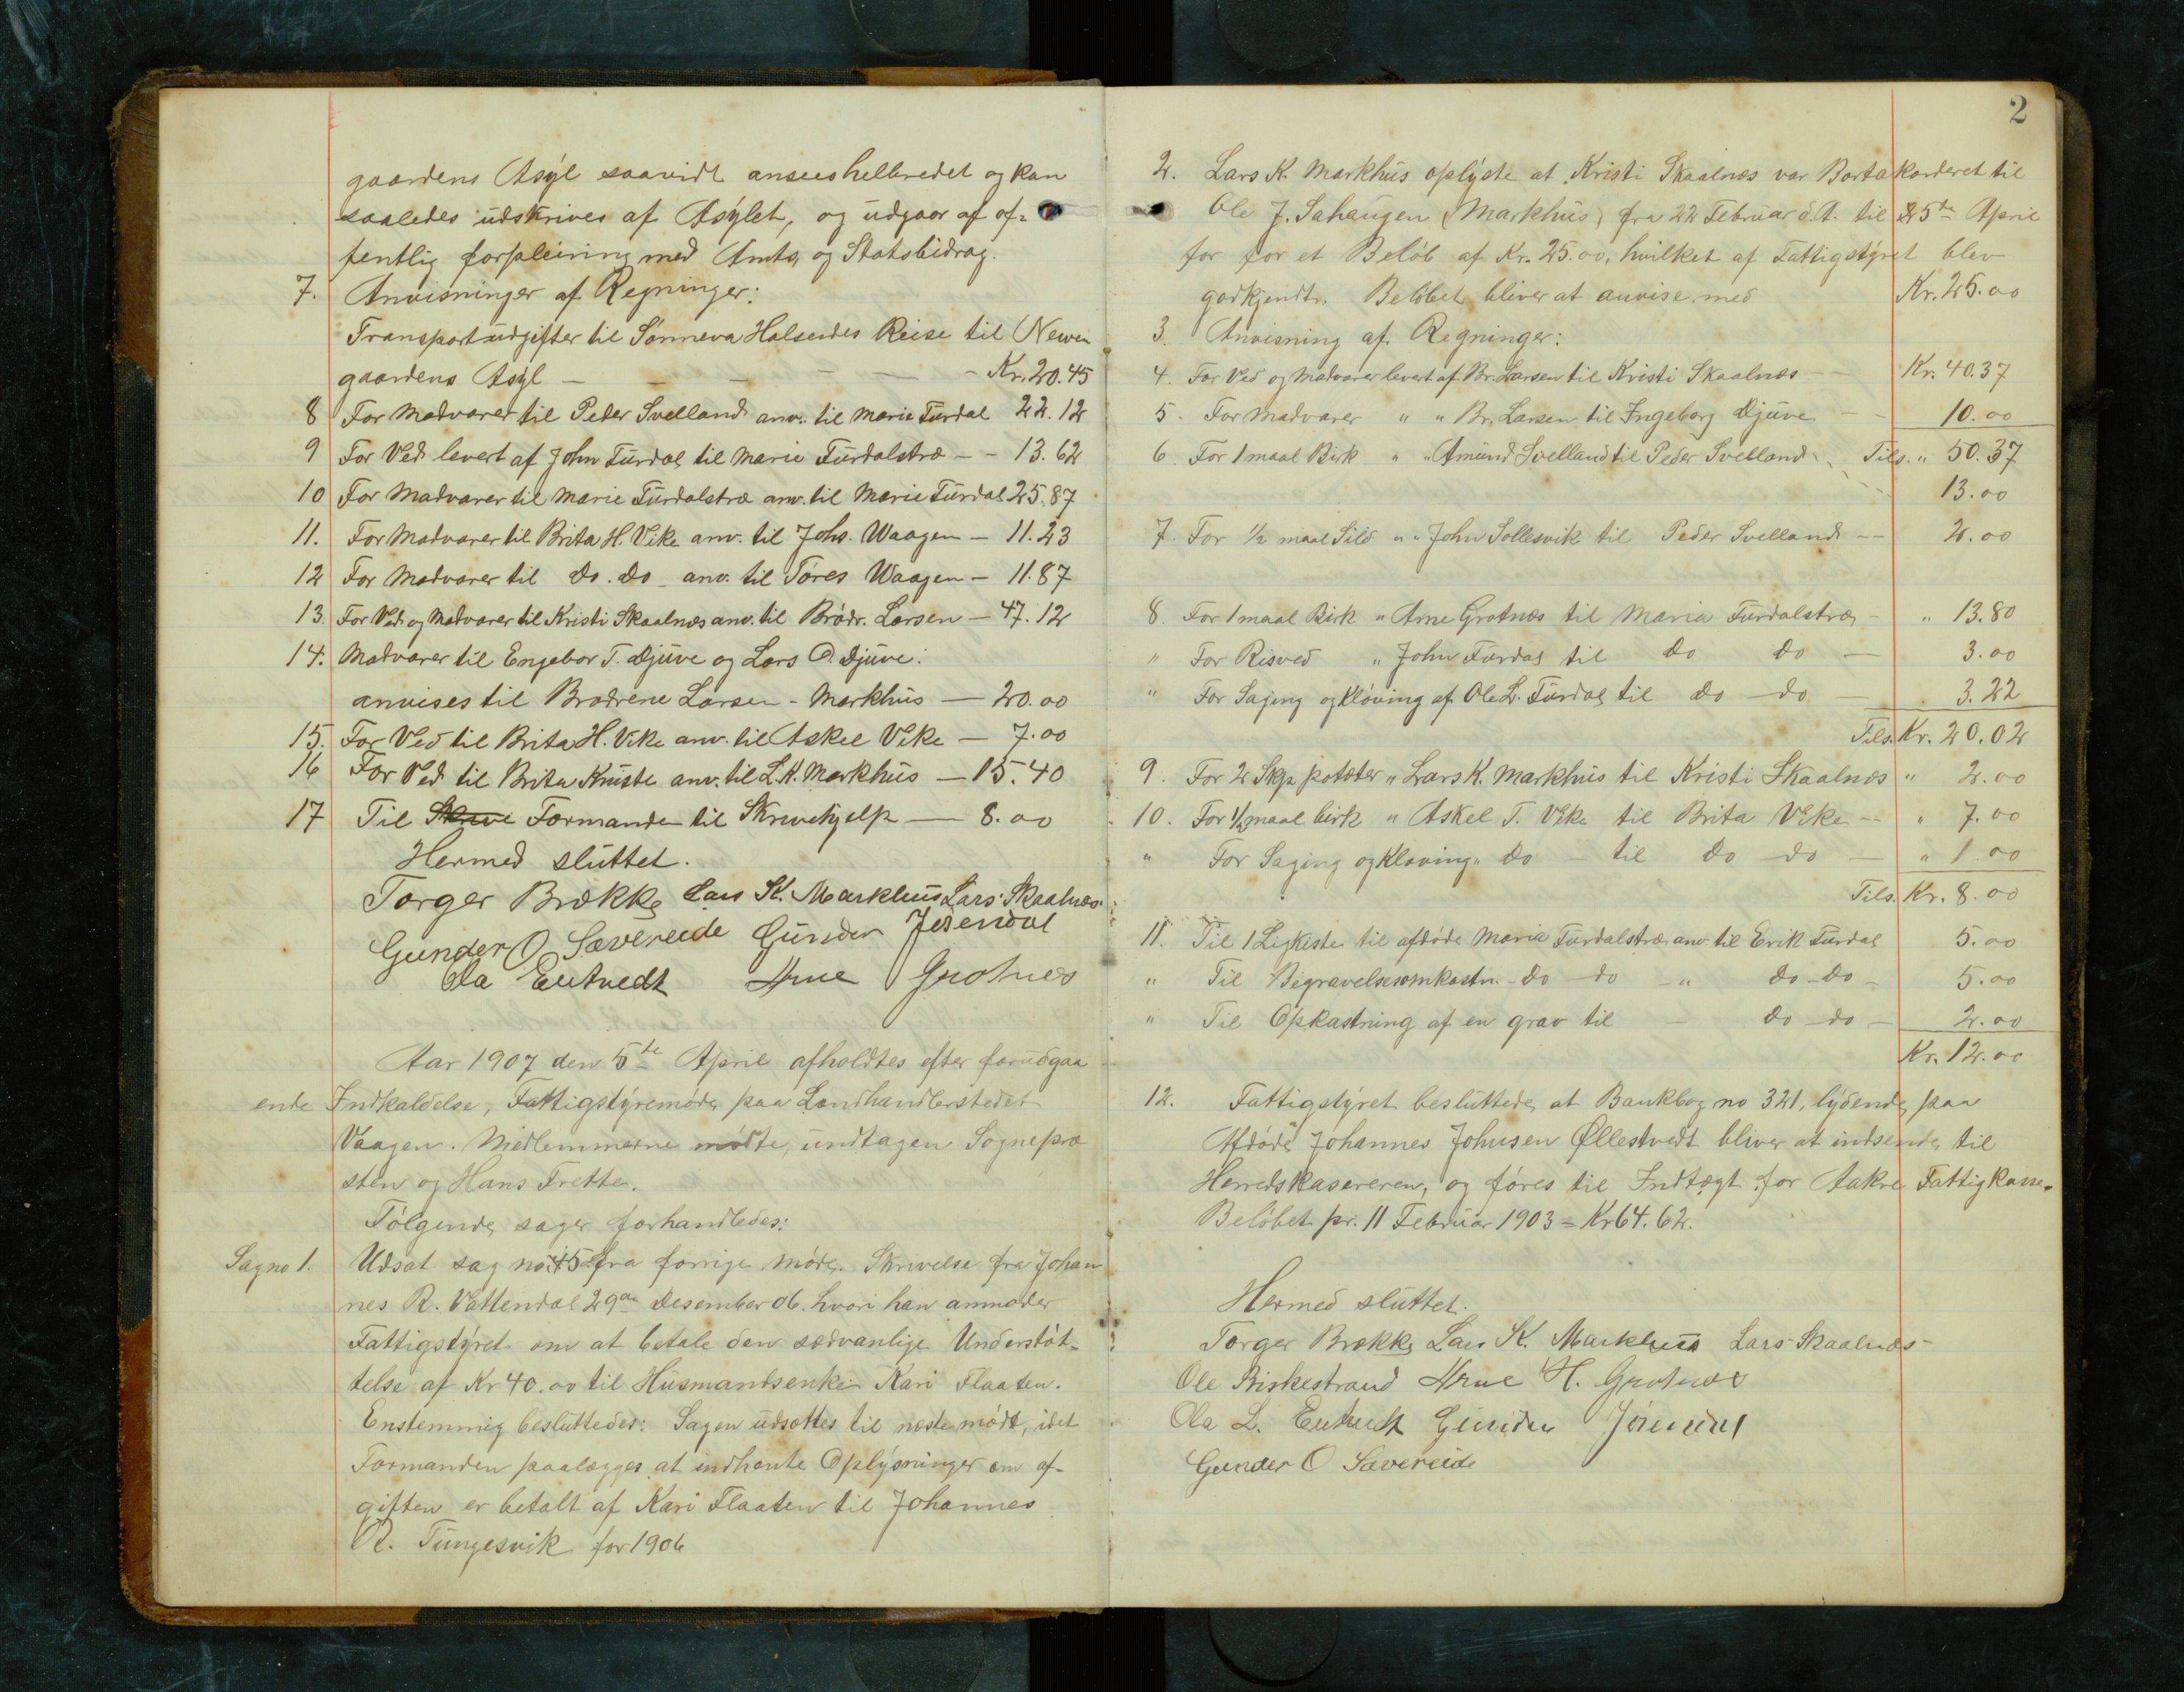 gaardens Asyl saavidt ansees helbredet og kan
saaledes udskrives af Asylet, og udgaar af of-
fentlig forpleining med Amts og Statsbidrag.
7. Anvisninger af Regninger:
Transportudgifter til Sønneva Halsendes Reise til Neven
gaardens Asyl - - - - - Kr. 20.45
8 For Madvarer til Peder Svelland anv. til Marie Furdal 22.12
9 For Ved levert af John Furdal til Marie Furdalstræ - - 13.62
10 For Madvarer til Marie Furdalstræ anv. til Marie Furdal 25.87
11. For Madvarer til Brita H. Vike anv. til Johs. Waagen - 11.23
12 For Madvarer til do. do - anv. til Tøres Waagen - 11.87
13. For Ved og Madvarer til Kristi Skaalnæs anv. til Brødr. Larsen - 47.12
14. Madvarer til Engebor T. Djuve og Lars O. Djuve:
anvises til Brødrene Larsen - Markhus - 20.00
15. For Ved til Brita H. Vike anv. til Askel Vike - 7.00
16 For Ved til Brita Knuste anv. til L. K. Markhus - 15.40
17 Til Skrive Formanden til Skrivehjelp - 8.00
Hermed sluttet.
Torger Brække Lars K. Markhus Lars Skaalnæs
Gunder O Sævereide Gunder Jøsendal
Ola Eintvedt Arne Grotnes
Aar 1907 den 5te April afholdtes efter forudgaa
ende Indkaldelse, Fattigstyremøde paa Landhandlerstedet
Vaagen. Medlemmerne mødte, undtagen Sognepræ
sten og Hans Frette.
Følgende sager forhandledes:
Sag no 1. Udsat sag no 45 fra forrige møde. Skrivelse fra Johan
nes R. Vattendal 29de Desember 06. hvori han anmoder
Fattigstyret om at betale den sædvanlige Understøt-
telse af Kr 40.00 til Husmandsenke Kari Flaaten.
Enstemmig besluttedes: Sagen udsættes til næste møde, idet
Formanden paalægges at indhente Oplysninger om af-
giften er betalt af Kari Flaaten til Johannes
R. Tungesvik for 1906
2
2. Lars K. Markhus oplyste at Kristi Skaalnæs var Bortakorderet til
Ole J. Sahaugen (Markhus) fra 22 Februar d.A. til 25de April
for for et Beløb af Kr. 25.00, hvilket af Fattigstyret blev
godkjendt. Beløbet bliver at anvise med Kr. 25.00
3. Anvisning af Regninger:
4. For Ved og Madvarer levert af Br. Larsen til Kristi Skaalnæs - Kr. 40.37
5. For Madvarer " " Br. Larsen til Ingeborg Djuve - - 10.00
6. For 1 maal Birk " " Amund Svelland til Peder Svelland Tils. " 50.37
13.00
7. For 1/2 maal Sild " " John Sollesvik til Peder Svelland - - 2.00
8. For 1 maal Birk " Arne Grotnæs til Maria Furdalstræ - " 13.80
" For Risved " John Furdal til do do - 3.00
" For Saging og Kløving af Ole L. Furdal til do - do - 3.22
Tils. Kr. 20.02
9. For 2 Skp. potæter " Lars K. Markhus til Kristi Skaalnæs " 2.00
10. For 1/2 maal birk " Askel T. Vike til Brita Vike - - " 7.00
" For Saging og Kløving " do - til do - do - " 1.00
Tils. Kr. 8.00
11. Til 1 Ligkiste til afdøde Marie Furdalstræ anv. til Erik Furdal 5.00
" Til Begravelsesomkostn. - do - do - " do - do - 5.00
" Til Opkastning af en grav til - do - do - 2.00
Kr. 12.00
12. Fattigstyret besluttede, at Bankbog no 321, lydende paa
Afdøde Johannes Johnsen Øllestvedt bliver at indsende til
Herredskasereren, og føres til Indtægt for Aakre Fattigkasse.
Beløbet pr. 11 Februar 1903 = Kr 64.62.
Hermed sluttet.
Torger Brække Lars K. Markhus Lars Skaalnæs
Ole Biskestrand Arne H. Grotnæs
Ola L. Eintvedt Gunder Jøsendal
Gunder O Sævereide